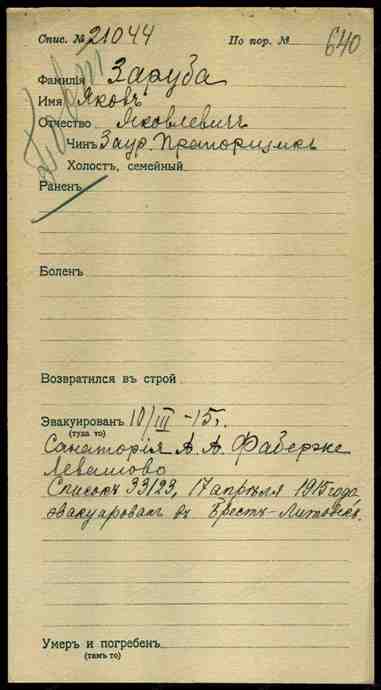 Спис. № 21044 По пор. № 640
Фамилія Заруба
Имя Яковъ
Отчество Яковлевичъ
Чинъ Заур. Прапорщикъ
Холостъ, семейный
Раненъ
Боленъ
Возвратился въ строй
Эвакуированъ 10/III -15 г.
(туда то)
Санаторія А. А. Фаберже
Левашово
Списокъ 33123, 17 апрѣля 1915 года
эвакуирован въ Брестъ-Литовскъ.
Умеръ и погребенъ
(тамъ то)